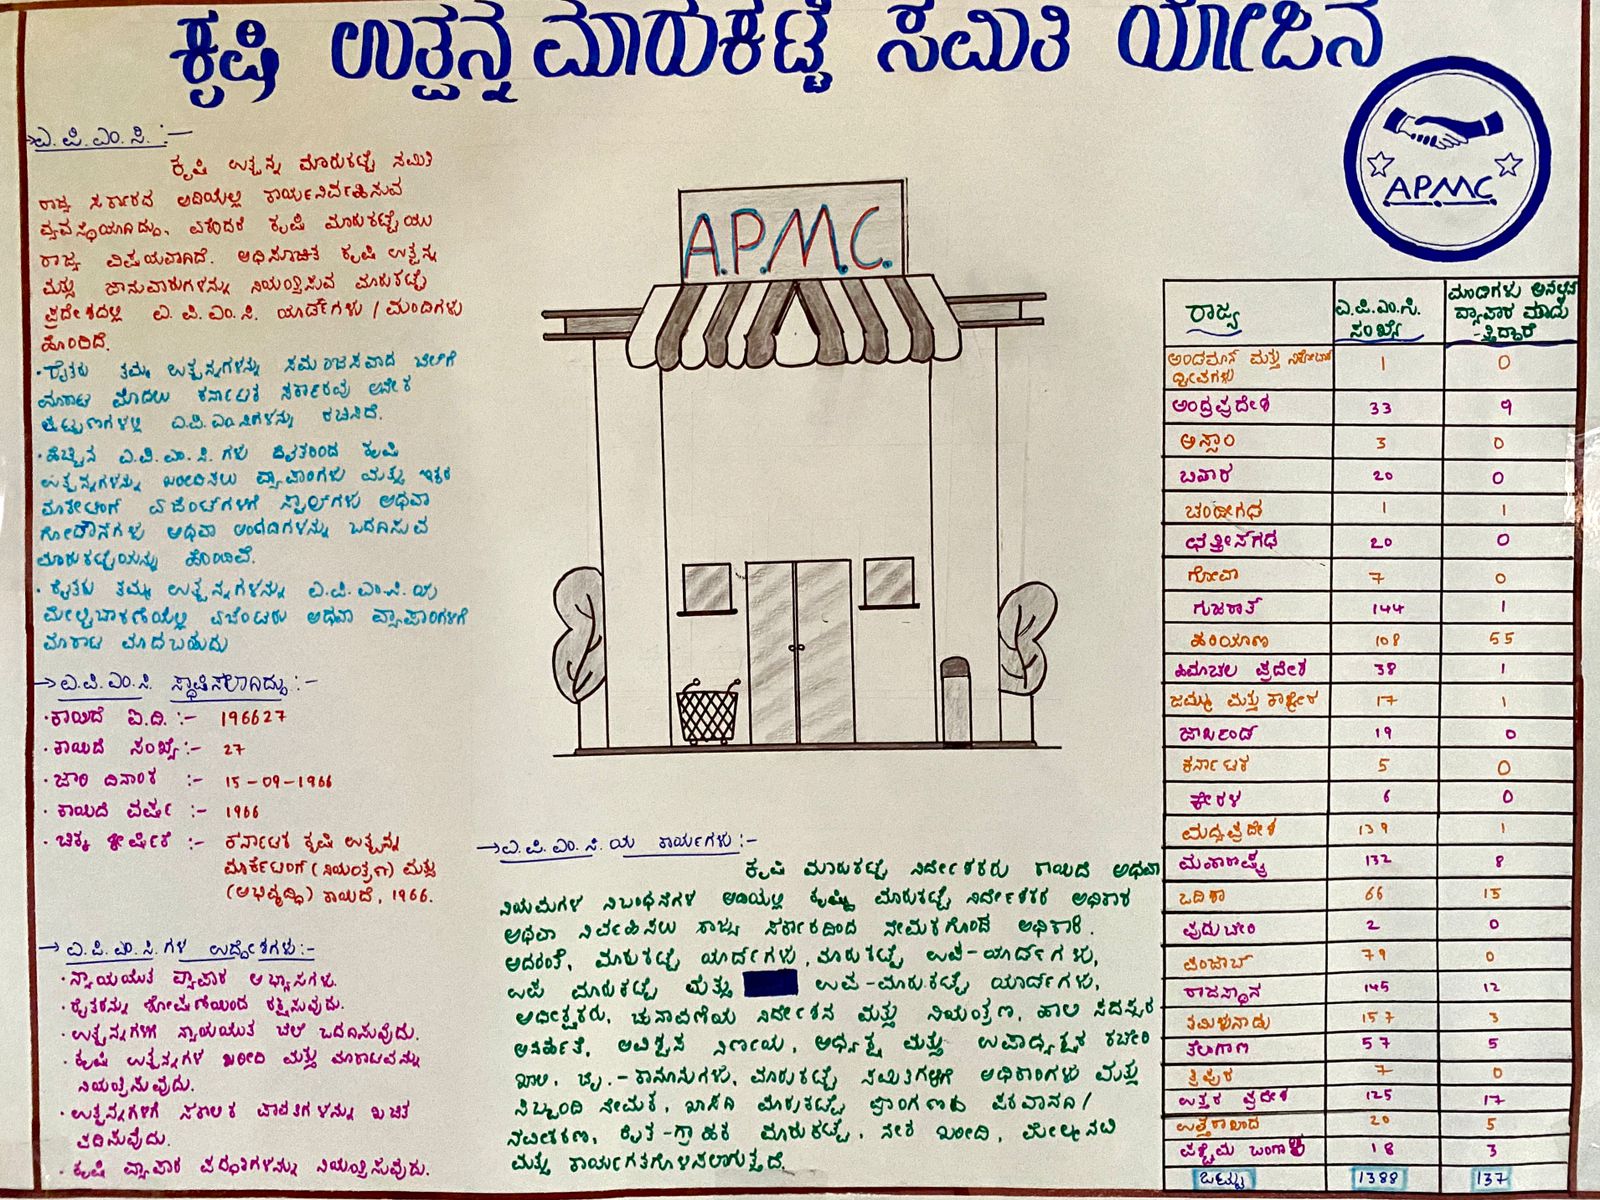 ಕೃಷಿ ಉತ್ಪನ್ನ ಮಾರುಕಟ್ಟೆ ಸಮಿತಿ ಯೋಜನ
ಎ.ಪಿ.ಎಂ.ಸಿ. :-
ಕೃಷಿ ಉತ್ಪನ್ನ ಮಾರುಕಟ್ಟೆ ಸಮಿತಿ
ರಾಜ್ಯ ಸರ್ಕಾರದ ಅಡಿಯಲ್ಲಿ ಕಾರ್ಯನಿರ್ವಹಿಸುವ
ವ್ಯವಸ್ಥೆಯಾಗಿದ್ದು, ಏಕೆಂದರೆ ಕೃಷಿ ಮಾರುಕಟ್ಟೆಯು
ರಾಜ್ಯ ವಿಷಯವಾಗಿದೆ. ಅಧಿಸೂಚಿತ ಕೃಷಿ ಉತ್ಪನ್ನ
ಮತ್ತು ಜಾನುವಾರುಗಳನ್ನು ನಿಯಂತ್ರಿಸುವ ಮಾರುಕಟ್ಟೆ
ಪ್ರದೇಶದಲ್ಲಿ ಎ.ಪಿ.ಎಂ.ಸಿ ಯಾರ್ಡ್‌ಗಳು / ಮಂಡಿಗಳು
ಹೊಂದಿದೆ.
• ರೈತರು ತಮ್ಮ ಉತ್ಪನ್ನಗಳನ್ನು ಸಮಂಜಸವಾದ ಬೆಲೆಗೆ
ಮಾರಾಟ ಮೊದಲು ಕರ್ನಾಟಕ ಸರ್ಕಾರವು ಅನೇಕ
ಪಟ್ಟಣಗಳಲ್ಲಿ ಎ.ಪಿ.ಎಂ.ಸಿಗಳನ್ನು ರಚಿಸಿದೆ.
• ಹೆಚ್ಚಿನ ಎ.ಪಿ.ಎಂ.ಸಿ.ಗಳು ರೈತರಿಂದ ಕೃಷಿ
ಉತ್ಪನ್ನಗಳನ್ನು ಖರೀದಿಸಲು ವ್ಯಾಪಾರಿಗಳು ಮತ್ತು ಇತರ
ಮಾರ್ಕೆಟಿಂಗ್ ಏಜೆಂಟ್‌ಗಳಿಗೆ ಸ್ಟಾಲ್‌ಗಳು ಅಥವಾ
ಗೋದೌನಗಳು ಅಥವಾ ಅಂಗಡಿಗಳನ್ನು ಒದಗಿಸುವ
ಮಾರುಕಟ್ಟೆಯನ್ನು ಹೊಂದಿವೆ.
• ರೈತರು ತಮ್ಮ ಉತ್ಪನ್ನಗಳನ್ನು ಎ.ಪಿ.ಎಂ.ಸಿ.ಯ
ಮೇಲ್ವಿಚಾರಣೆಯಲ್ಲಿ ಏಜೆಂಟರು ಅಥವಾ ವ್ಯಾಪಾರಿಗಳಿಗೆ
ಮಾರಾಟ ಮಾಡಬಹುದು
ಎ.ಪಿ.ಎಂ.ಸಿ ಸ್ಥಾಪಿಸಲಾಗಿದ್ದು:-
• ಕಾಯಿದೆ ಐ.ಡಿ. :- 196627
• ಕಾಯಿದೆ ಸಂಖ್ಯೆ:- 27
• ಜಾರಿ ದಿನಾಂಕ :- 15-09-1966
• ಕಾಯಿದೆ ವರ್ಷ :- 1966
• ಚಿಕ್ಕ ಶೀರ್ಷಿಕೆ :- ಕರ್ನಾಟಕ ಕೃಷಿ ಉತ್ಪನ್ನ
ಮಾರ್ಕೆಟಿಂಗ್ (ನಿಯಂತ್ರಣ) ಮತ್ತು
(ಅಭಿವೃದ್ಧಿ) ಕಾಯಿದೆ, 1966.
ಎ.ಪಿ.ಎಂ.ಸಿ.ಗಳ ಉದ್ದೇಶಗಳು:-
• ನ್ಯಾಯಯುತ ವ್ಯಾಪಾರ ಅಭ್ಯಾಸಗಳು.
• ರೈತರನ್ನು ಶೋಷಣೆಯಿಂದ ರಕ್ಷಿಸುವುದು.
• ಉತ್ಪನ್ನಗಳಿಗೆ ನ್ಯಾಯಯುತ ಬೆಲೆ ಒದಗಿಸುವುದು.
• ಕೃಷಿ ಉತ್ಪನ್ನಗಳ ಖರೀದಿ ಮತ್ತು ಮಾರಾಟವನ್ನು
ನಿಯಂತ್ರಿಸುವುದು.
• ಉತ್ಪನ್ನಗಳಿಗೆ ಸಕಾಲಿಕ ಪಾವತಿಗಳನ್ನು ಖಚಿತ
ಪಡಿಸುವುದು.
• ಕೃಷಿ ವ್ಯಾಪಾರ ಪದ್ಧತಿಗಳನ್ನು ನಿಯಂತ್ರಿಸುವುದು.
A.P.M.C.
ಎ.ಪಿ.ಎಂ.ಸಿ.ಯ ಕಾರ್ಯಗಳು:-
ಕೃಷಿ ಮಾರುಕಟ್ಟೆ ನಿರ್ದೇಶಕರು ಕಾಯಿದೆ ಅಥವಾ
ನಿಯಮಗಳ ನಿಬಂಧನೆಗಳ ಅಡಿಯಲ್ಲಿ ಕೃಷಿ ಮಾರುಕಟ್ಟೆ ನಿರ್ದೇಶಕರ ಅಧಿಕಾರ
ಅಥವಾ ನಿರ್ವಹಿಸಲು ರಾಜ್ಯ ಸರ್ಕಾರದಿಂದ ನೇಮಕಗೊಂಡ ಅಧಿಕಾರಿ.
ಅದರಂತೆ, ಮಾರುಕಟ್ಟೆ ಯಾರ್ಡ್‌ಗಳು, ಮಾರುಕಟ್ಟೆ ಉಪ-ಯಾರ್ಡ್‌ಗಳು,
ಉಪ ಮಾರುಕಟ್ಟೆ ಮತ್ತು ಉಪ-ಮಾರುಕಟ್ಟೆ ಯಾರ್ಡ್‌ಗಳು,
ಅಧೀಕ್ಷಕರು, ಚುನಾವಣೆಯ ನಿರ್ದೇಶನ ಮತ್ತು ನಿಯಂತ್ರಣ, ಹಾಲಿ ಸದಸ್ಯರ
ಅನರ್ಹತೆ, ಅವಿಶ್ವಾಸ ನಿರ್ಣಯ, ಅಧ್ಯಕ್ಷ ಮತ್ತು ಉಪಾಧ್ಯಕ್ಷರ ಕಚೇರಿ
ಖಾಲಿ, ಬೈ.-ಕಾನೂನುಗಳು, ಮಾರುಕಟ್ಟೆ ಸಮಿತಿಗಳಿಗೆ ಅಧಿಕಾರಿಗಳು ಮತ್ತು
ಸಿಬ್ಬಂದಿ ನೇಮಕ, ಖಾಸಗಿ ಮಾರುಕಟ್ಟೆ ಪ್ರಾಂಗಣಕ್ಕೆ ಪರವಾನಗಿ/
ನವೀಕರಣ, ರೈತ-ಗ್ರಾಹಕ ಮಾರುಕಟ್ಟೆ, ನೇರ ಖರೀದಿ,
ಮತ್ತು ಕಾರ್ಯಗತಗೊಳಿಸಲಾಗುತ್ತದೆ.
A.P.M.C.
ರಾಜ್ಯ ಎ.ಪಿ.ಎಂ.ಸಿ. ಸಂಖ್ಯೆ ಮಂಡಿಗಳು ವ್ಯಾಪಾರ ಮಾಡುತ್ತಿದ್ದಾರೆ
ಅಂಡಮಾನ್ ಮತ್ತು ನಿಕೋಬಾರ್ ದ್ವೀಪಗಳು 1 0
ಆಂಧ್ರಪ್ರದೇಶ 33 9
ಅಸ್ಸಾಂ 3 0
ಬಿಹಾರ 20 0
ಚಂಡೀಗಢ 1 1
ಛತ್ತೀಸ್‌ಗಢ 20 0
ಗೋವಾ 7 0
ಗುಜರಾತ್ 144 1
ಹರಿಯಾಣ 108 55
ಹಿಮಾಚಲ ಪ್ರದೇಶ 38 1
ಜಮ್ಮು ಮತ್ತು ಕಾಶ್ಮೀರ 17 1
ಜಾರ್ಖಂಡ್ 19 0
ಕರ್ನಾಟಕ 5 0
ಕೇರಳ 6 0
ಮಧ್ಯಪ್ರದೇಶ 139 1
ಮಹಾರಾಷ್ಟ್ರ 132 8
ಒಡಿಶಾ 66 15
ಪುದುಚೇರಿ 2 0
ಪಂಜಾಬ್ 79 0
ರಾಜಸ್ಥಾನ 145 12
ತಮಿಳುನಾಡು 157 3
ತೆಲಂಗಾಣ 57 5
ತ್ರಿಪುರ 7 0
ಉತ್ತರ ಪ್ರದೇಶ 125 17
ಉತ್ತರಾಖಂಡ 20 5
ಪಶ್ಚಿಮ ಬಂಗಾಳ 18 3
ಒಟ್ಟು 1388 137